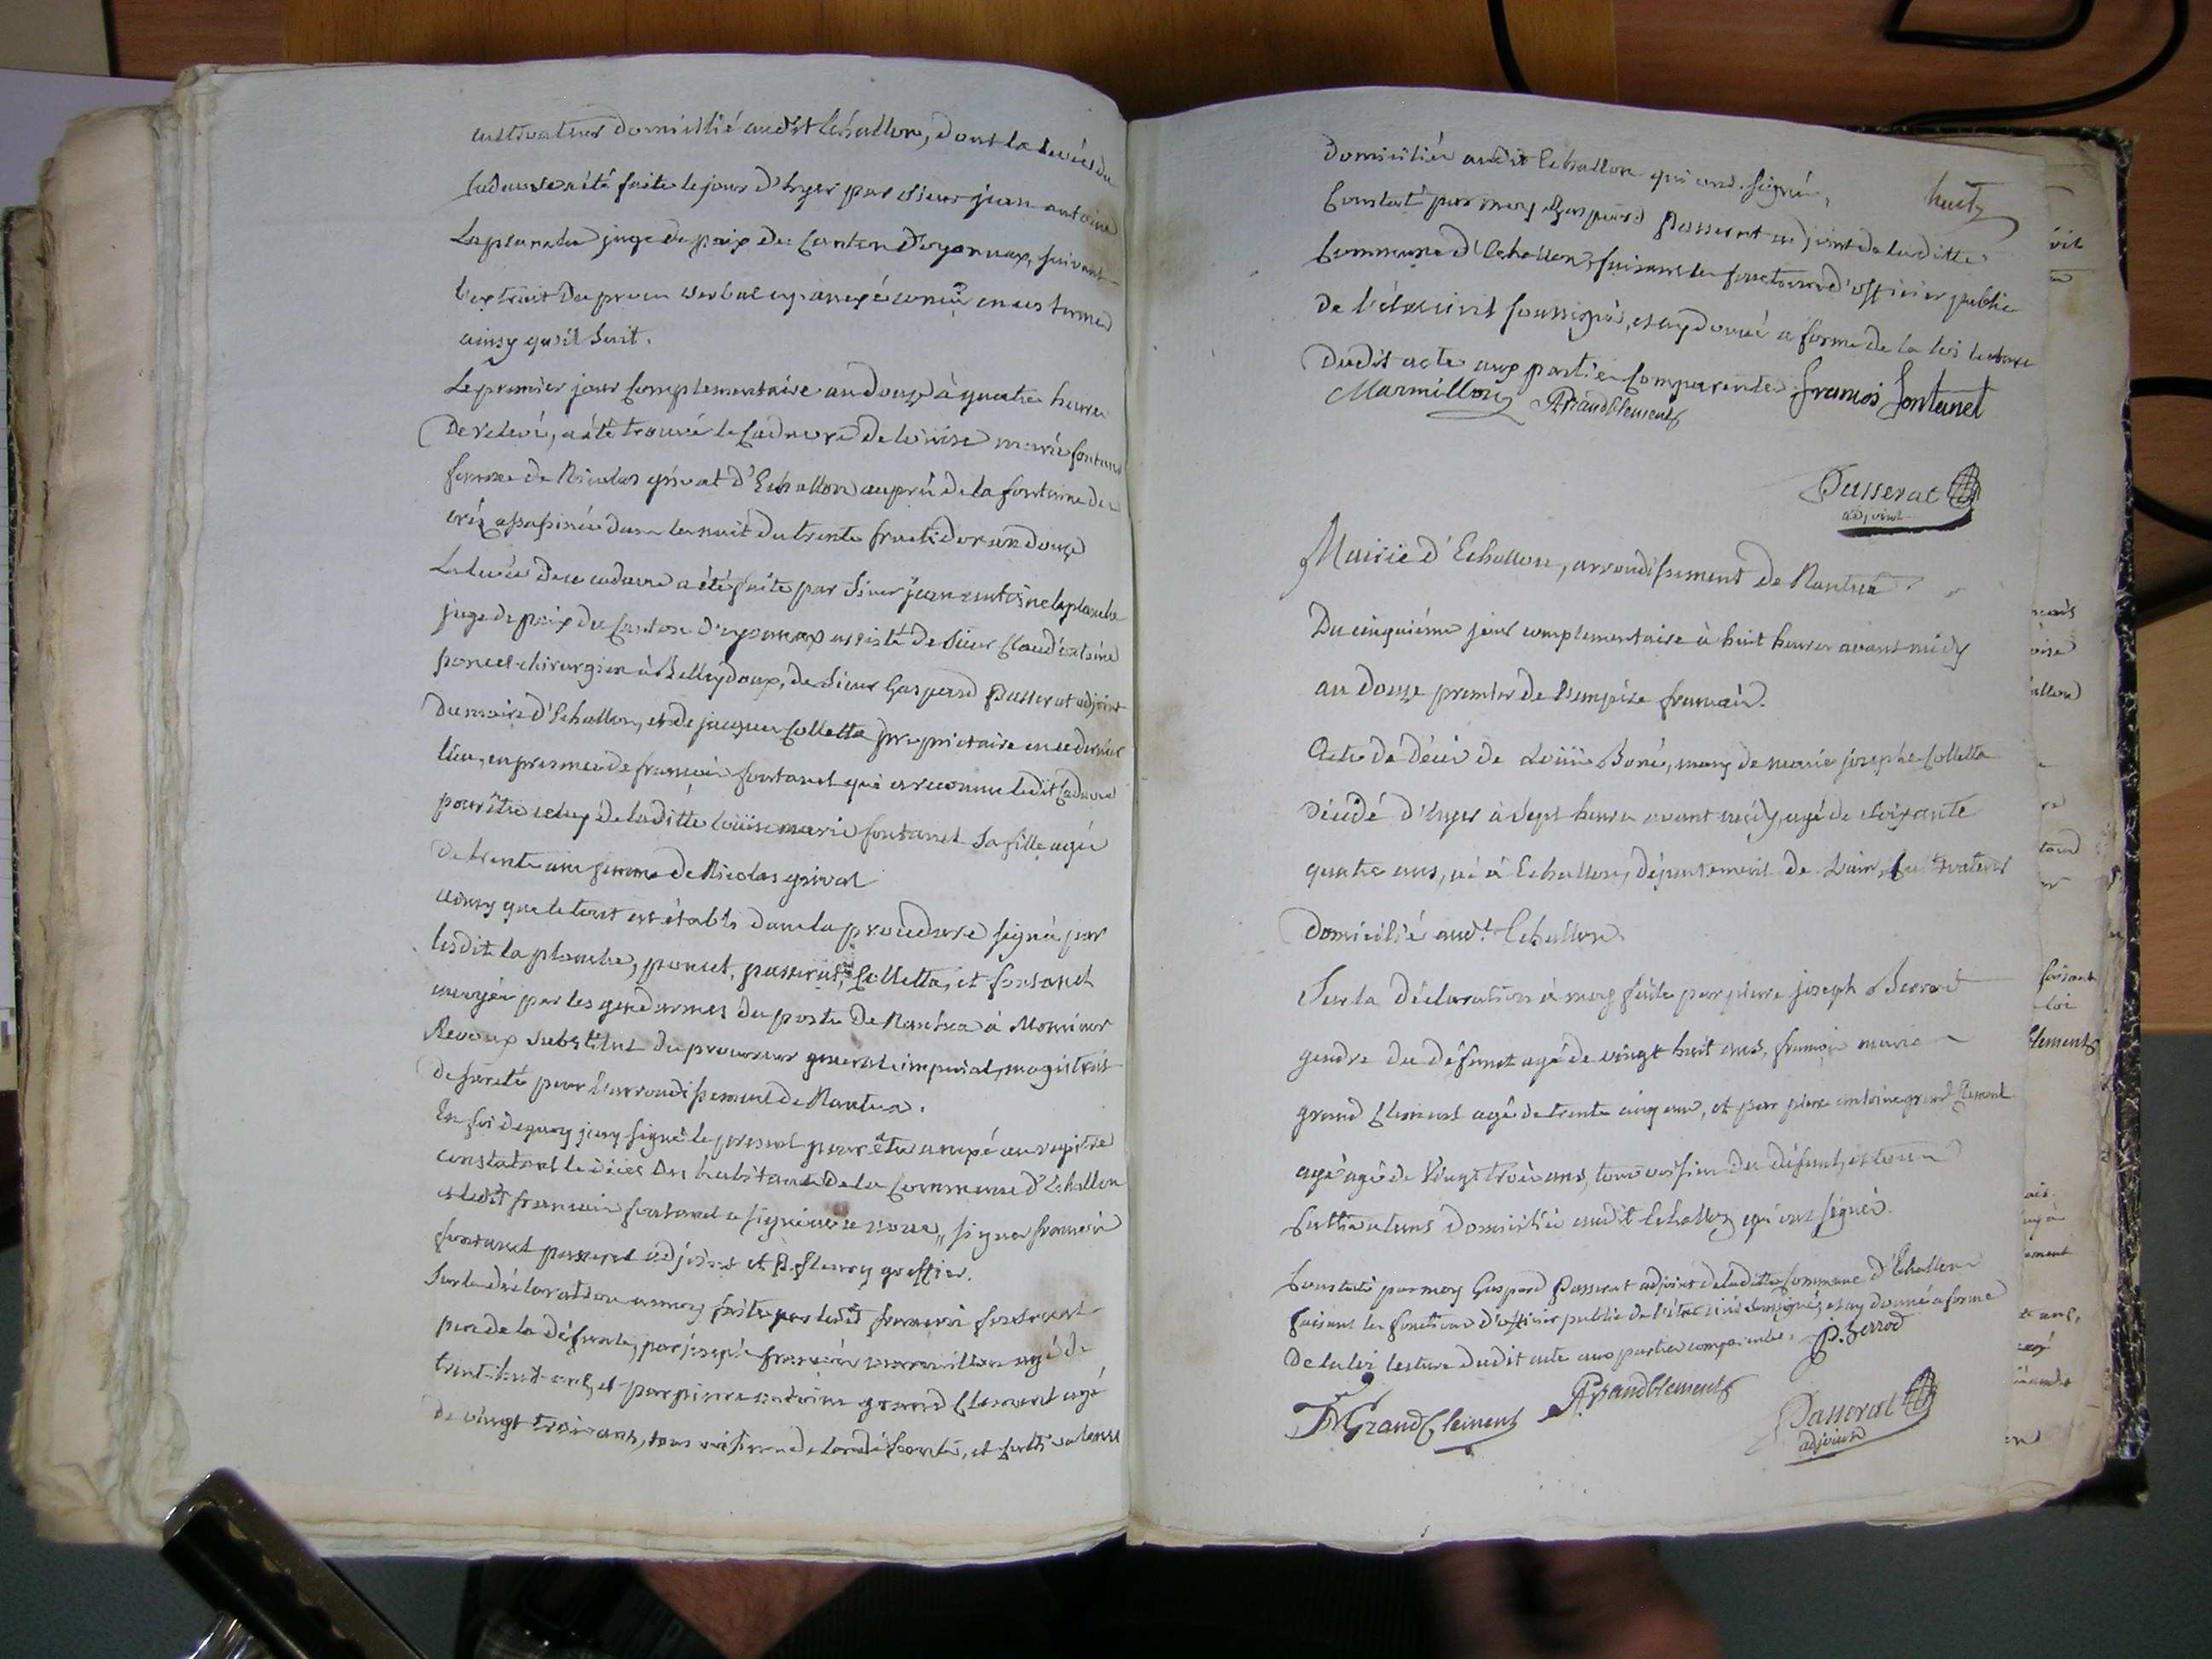 cultivateur domicilié audit Echallon, dont la levée du
cadavre a été faite le jour d'hyer par sieur jean antoine
Laplanche juge de paix du Canton d'oyonnax, suivant
l'extrait du procès verbal cy annexé conçu en ces termes
ainsy qu'il suit.
Le premier jour Complementaire an douze à quatre heures
De relevé, a été trouvé le Cadavre de loüise marie fontanel
femme de Nicolas grivat d'Echallon auprès de la fontaine de
crêz assassinée dans la nuit du trente fructidor an douze
La levée de ce cadavre a été faite par Sieur jean antoine laplanche
juge de paix du Canton d'oyonnax assisté de Sieur Claude antoine
poncet chirurgien à Belleydoux, de Sieur Gaspard Passerat adjoint
du maire d'Echallon, et de jacques Colletta propriétaire en ce dernier
lieu, en presence de françois fontanel qui a reconnu ledit Cadavre
pour être celuy de laditte loüise marie fontanel sa fille agée
de trente ans femme de Nicolas grivat
ainsy que le tout est établi dans la procedure signée par
lesdit la planche, poncet, passerat, Colletta, et fontanel
envoyée par les gendarmes du poste De Nantua à Monsieur
Revoux substitut du procureur general imperial, magistrat
de sureté pour l'arrondissement de Nantua.
En foi de quoy j'ay signé le present pour être annexé au registre
constatant le décès des habitans de la Commune d'Echallon
et ledit françois fontanel a signé avec nous, signé françois
fontanel passerat adjoint et P. fleury greffier.
Sur la déclaration a moy faite par ledit françois fontanel
père de la défunte, par joseph françois marmillon agé de
trent-huit ans, et par pierre antoine grand Clement agé
de vingt trois ans, tous voisins de la défunte, et Cultivateurs
huit
domiciliés audit Echallon qui ont signé,
Constaté par moy Gaspard Passerat adjoint de laditte
Commune d'Echallon, faisant les fonctions d'officier public
de l'état civil soussigné, et ay donné a forme de la loi lecture
dudit acte aux parties Comparentes. françois fontanel
Marmillon PAGrandClement
Passerat
adjoint
Mairie d'Echallon, arrondissement de Nantua.
Du cinquième jour complementaire à huit heures avant midy
an douze premier de l'empire français.
Acte de décès de Loüis Boné, mary de marie josephe Colletta
décédé d'hyer à sept heures avant midy, agé de soixante
quatre ans, né à Echallon, département de L'ain, Cultivateur
domicilié aud.t Echallon.
Sur la déclaration à moy faite par pierre joseph Berrod
gendre du défunt agé de vingt huit ans, françois marie
grand Clement agé de trente cinq ans, et par pierre antoine grand Clement
agé agé de Vingt trois ans, tous voisins du défunt, et tous
Cultivateurs domiciliés audit Echallon qui ont signé.
Constaté par moy Gaspard Passerat adjoint de laditte Commune d'Echallon
faisant les fonctions d'officier public de l'état civil soussigné, et ay donné a forme
De la loi lecture dudit acte aux parties comparentes. P. Berrod
FMGrandClement PAGrandClement
Passerat
adjoint